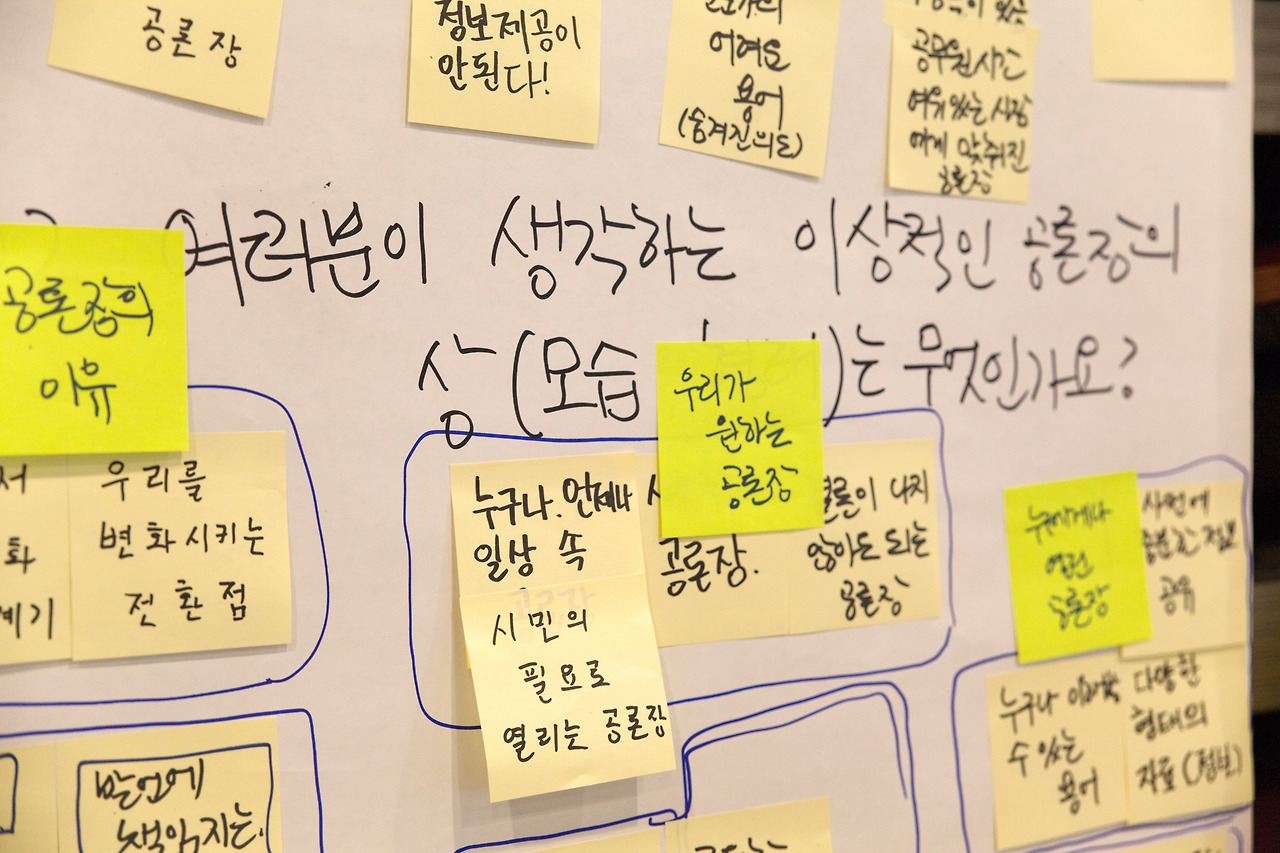 공론장
정보제공이
안된다!
어려운
용어
(숨겨진의도)
공무원시간
여유있는 시장
에게 맞춰진
공론장
여러분이 생각하는 이상적인 공론장의
상(모습 )는 무엇인가요?
공론장의
이유
서
화
계기
우리를
변화시키는
전환점
우리가
원하는
공론장
누구나. 언제나
일상 속
시민의
필요로
열리는 공론장
공론장.
결론이 나지
않아도 되는
공론장
누구에게나
열린
공론장
사전에
충분한 정보
공유
누구나 이해할
수 있는
용어
다양한
형태의
자료 (정보)
발언에
책임지는.